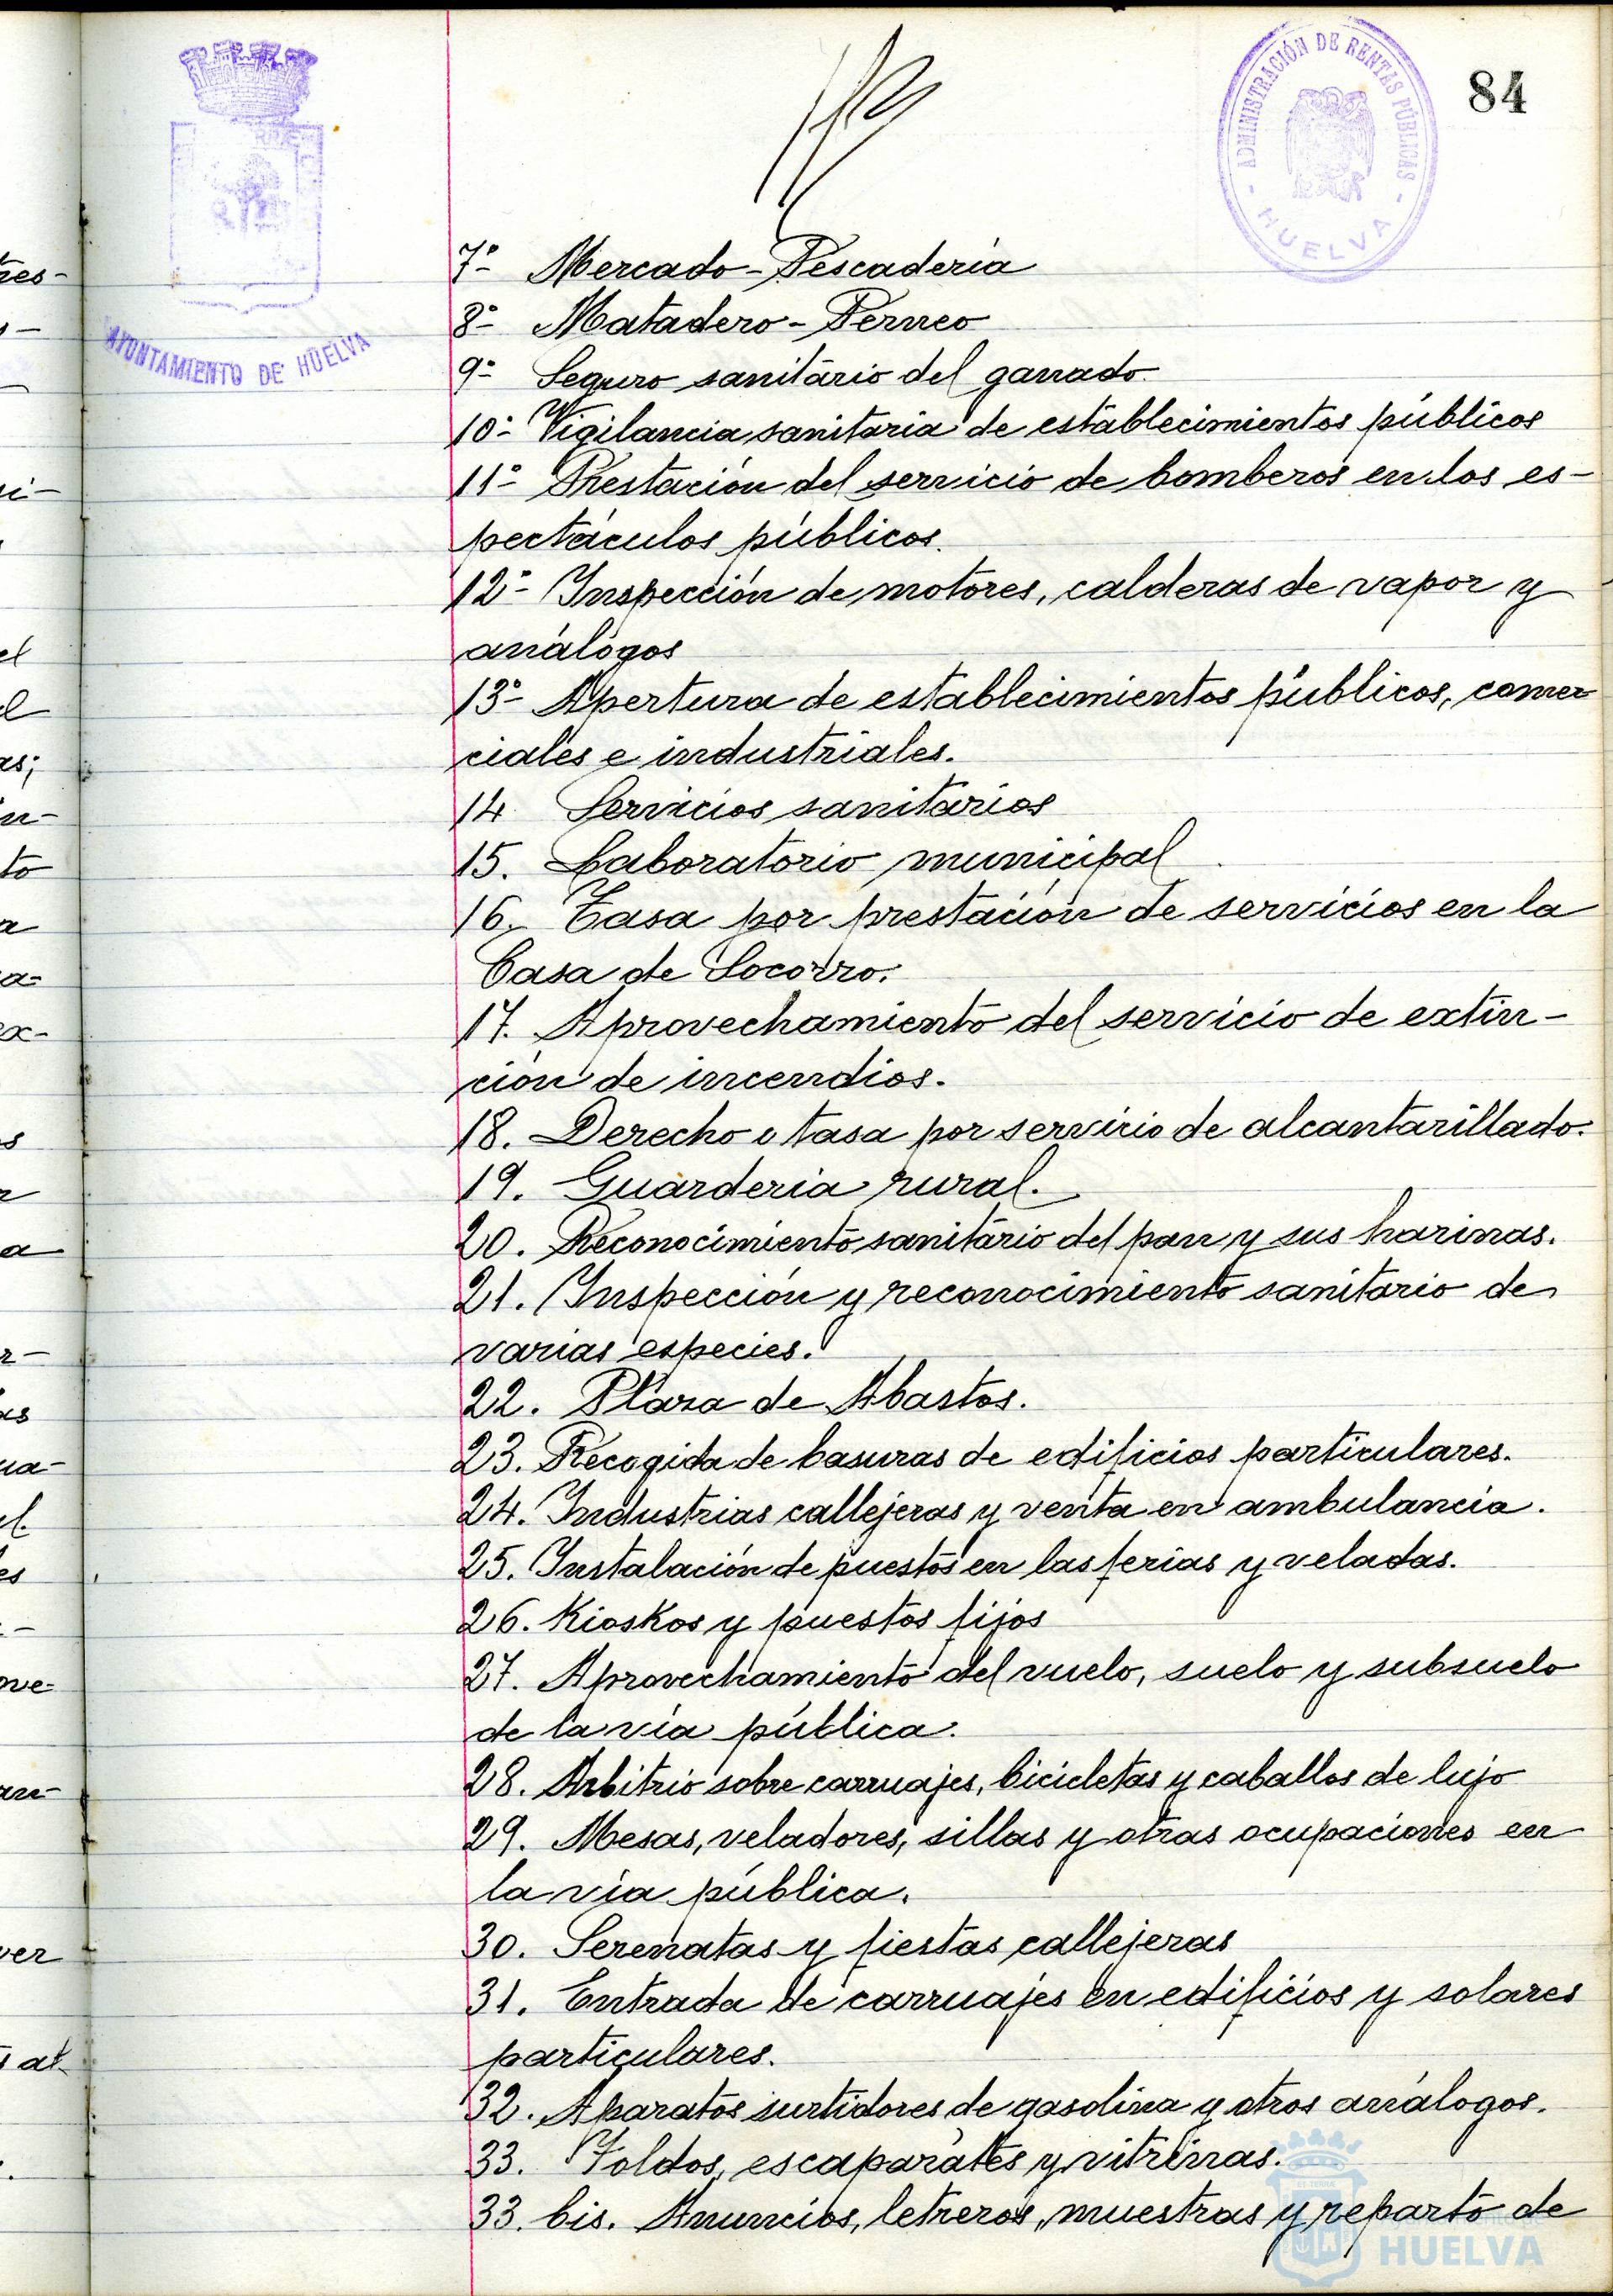 84
ADMINISTRACIÓN DE RENTAS PÚBLICAS
HUELVA
AYUNTAMIENTO DE HUELVA
7º- Mercado-Pescadería
8º- Matadero-Perneo
9º- Seguro sanitario del ganado.
10º- Vigilancia sanitaria de establecimientos públicos
11º- Prestación del servicio de bomberos en los es-
pectáculos públicos.
12º- Inspección de motores, calderas de vapor y
análogos
13º- Apertura de establecimientos públicos, comer
ciales e industriales.
14 Servicios sanitarios
15. Laboratorio municipal
16. Tasa por prestación de servicios en la
Casa de Socorro.
17. Aprovechamiento del servicio de extin-
ción de incendios.
18. Derecho o tasa por servicio de alcantarillado.
19. Guardería rural.
20. Reconocimiento sanitario del pan y sus harinas.
21. Inspección y reconocimiento sanitario de
varias especies.
22. Plaza de Abastos.
23. Recogida de basuras de edificios particulares.
24. Industrias callejeras y venta en ambulancia.
25. Instalación de puestos en las ferias y veladas.
26. Kioskos y puestos fijos
27. Aprovechamiento del vuelo, suelo y subsuelo
de la vía pública.
28. Arbitrio sobre carruajes, bicicletas y caballos de lujo
29. Mesas, veladores, sillas y otras ocupaciones en
la vía pública.
30. Serenatas y fiestas callejeras
31. Entrada de carruajes en edificios y solares
particulares.
32. Aparatos surtidores de gasolina y otros análogos.
33. Toldos, escaparates y vitrinas.
33. bis. Anuncios, letreros, muestras y reparto de
HUELVA